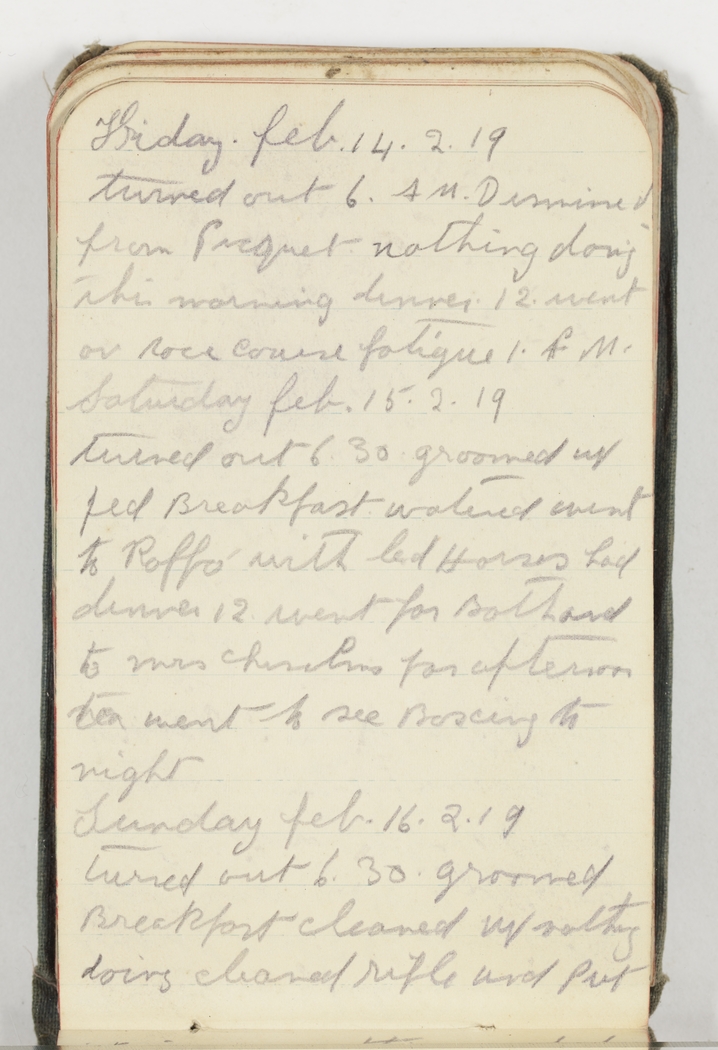 Friday. feb. 14. 2. 19
turned out 6. A M. Dismined
from Picquet. nothing doing
this morning dinner. 12. went
on race course fatigue 1. P. M.
Saturday feb. 15. 2. 19
turned out 6. 30. groomed up
fed Breakfast. watered went
to Raffa with led Horses had
dinner 12. went for Bath and
to mrs Chisolms for afternoon
tea went to see Boxcing to
night
Sunday feb. 16. 2. 19
turned out 6. 30. groomed
Breakfast cleaned up nothing
doing cleaned rifle and Put